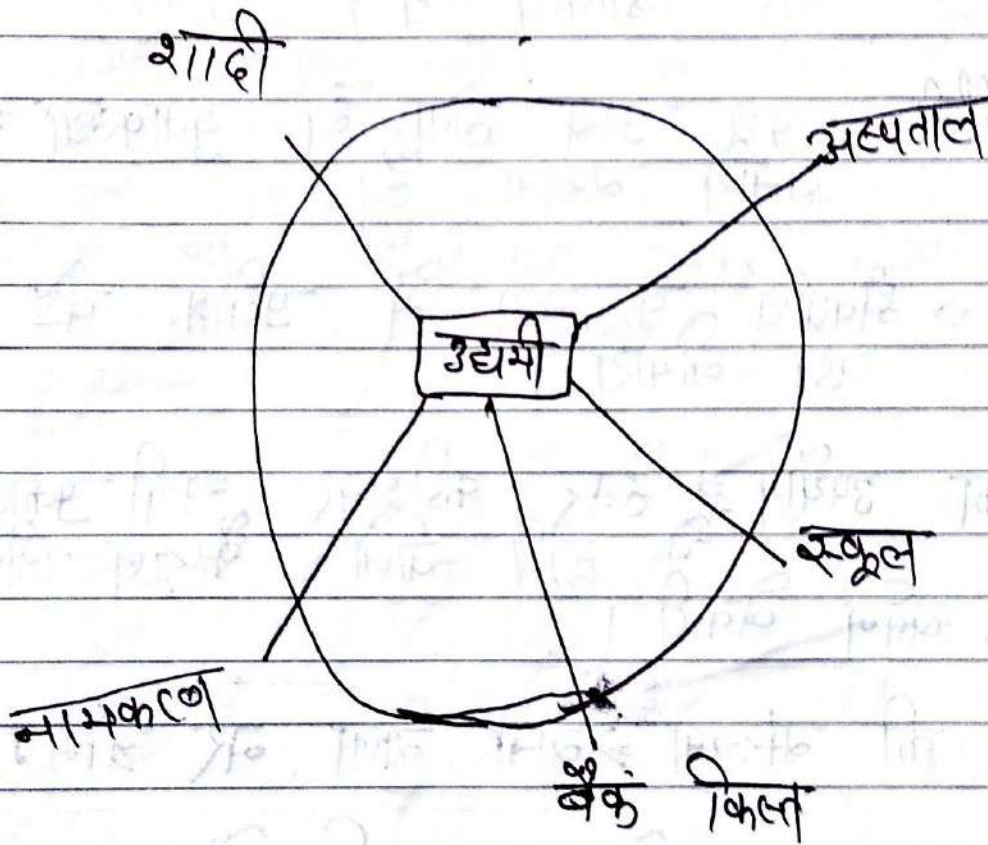 शादी
अस्पताल
उद्यमी
स्कूल
नामकरण
बैंक किस्त